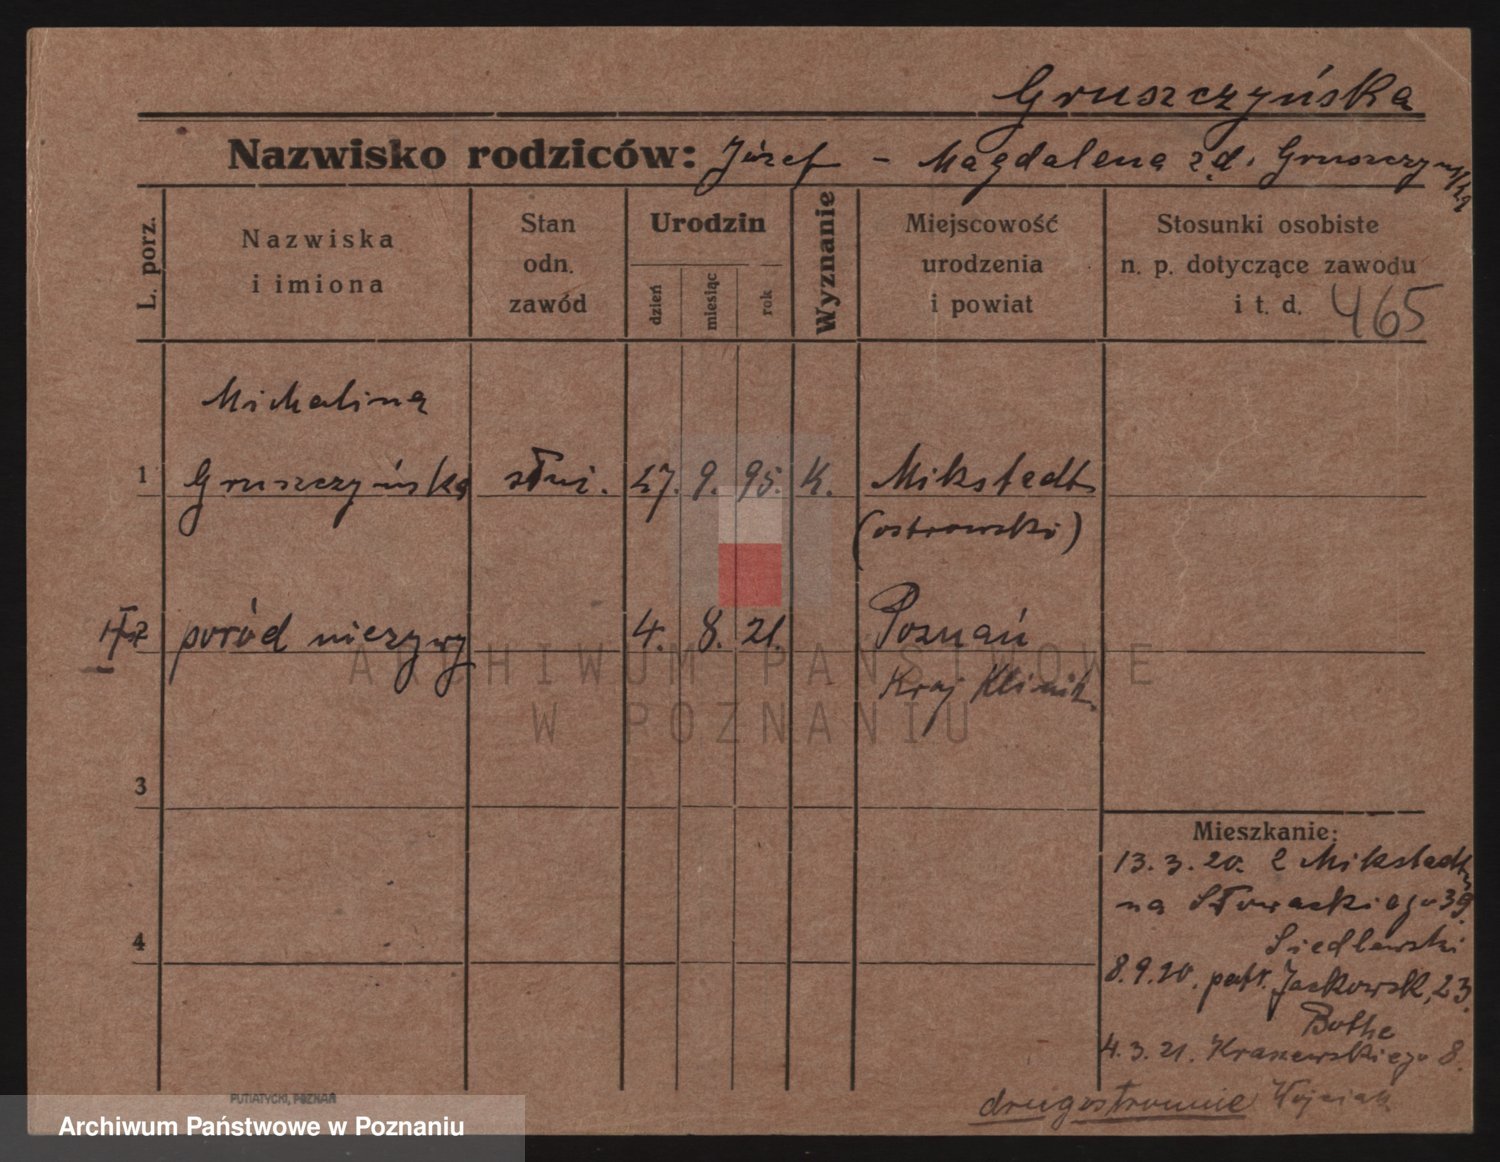 Gruszczyńska
Nazwisko rodziców: Józef - Magdalena z d. Gruszczyńska
L. porz.
Nazwiska
i imiona
Stan
odn.
zawód
Urodzin
dzień
miesiąc
rok
Wyznanie
Miejscowość
urodzenia
i powiat
Stosunki osobiste
n. p. dotyczące zawodu
i t. d. 465
Michalina
1 Gruszczyńska służ. 27. 9. 95. K. Mikstadt
(ostrowski)
2 poród nieżywy 4. 8. 21. Poznań
Kraj Klinik.
3
4
Mieszkanie:
13. 3. 20. z Mikstadtu
na Słowackiego 39.
Siedlewski
8. 9. 20. patr. Jackowsk. 23.
Bothe
4. 3. 21. Kraszewskiego 8.
drugostronnie Wojciak
PUTIATYCKI, POZNAŃ
ARCHIWUM PAŃSTWOWE
W POZNANIU
Archiwum Państwowe w Poznaniu